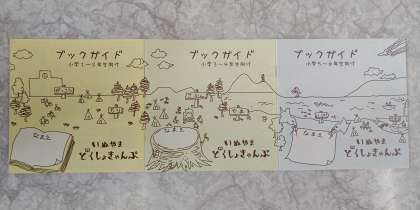 ブックガイド
小学1~2年生向け
なまえ
いぬやま
どくしょきゃんぷ
ブックガイド
小学3~4年生向け
なまえ
いぬやま
どくしょきゃんぷ
ブックガイド
小学5~6年生向け
なまえ
いぬやま
どくしょきゃんぷ